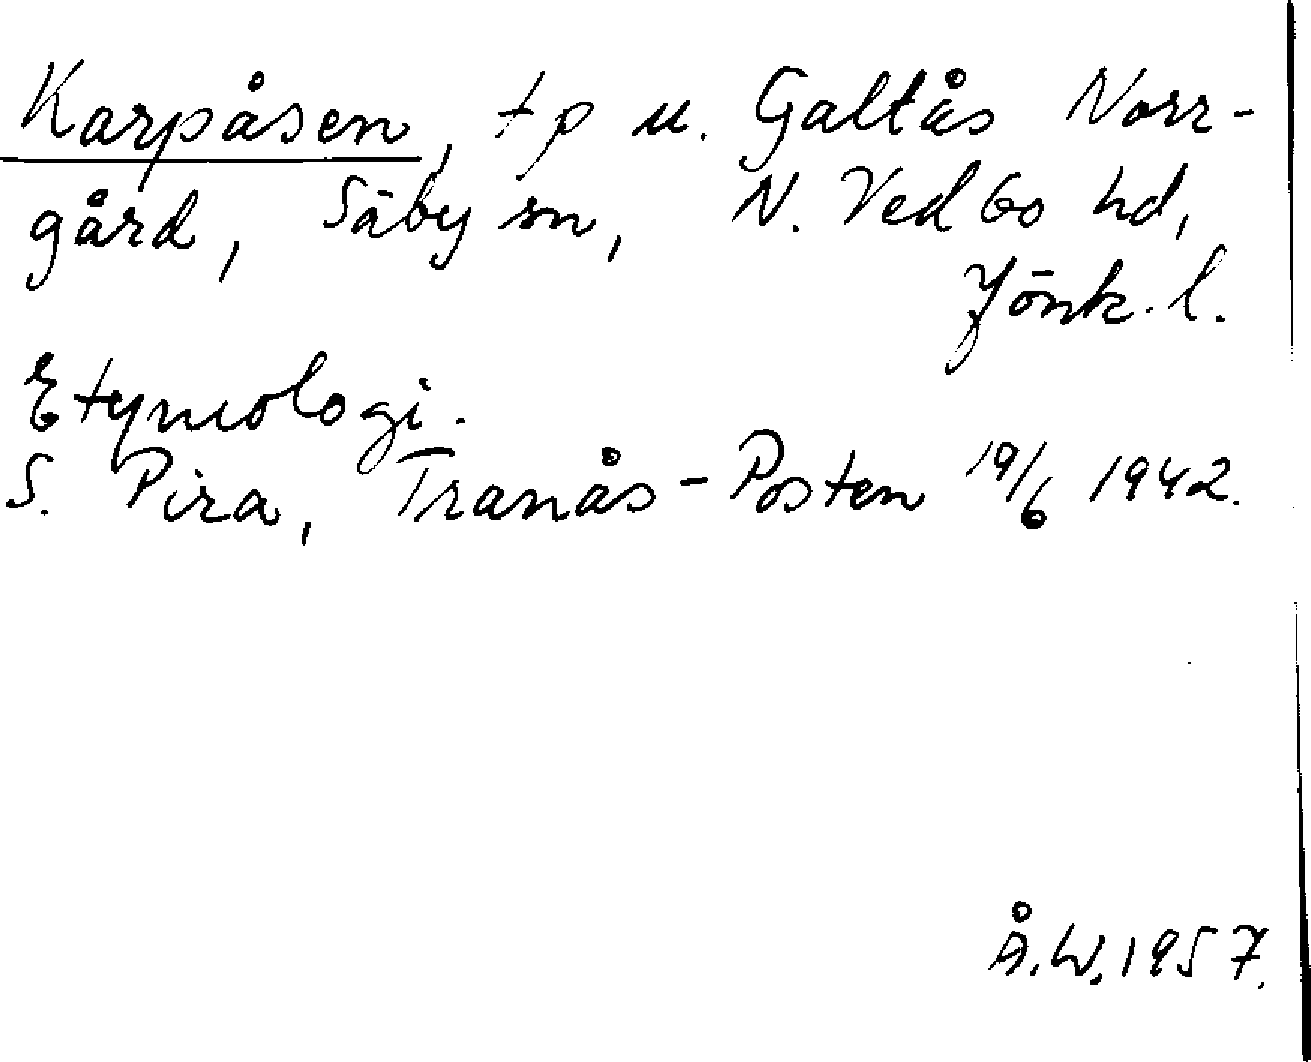 Karpåsen, tp u. Galtås Norr-
gård, Säby sn, N. Vedbo hd,
Jönk. l.
Etymologi.
S. Pira, Tranås-Posten 19/6 1942.
Å.W. 1957.